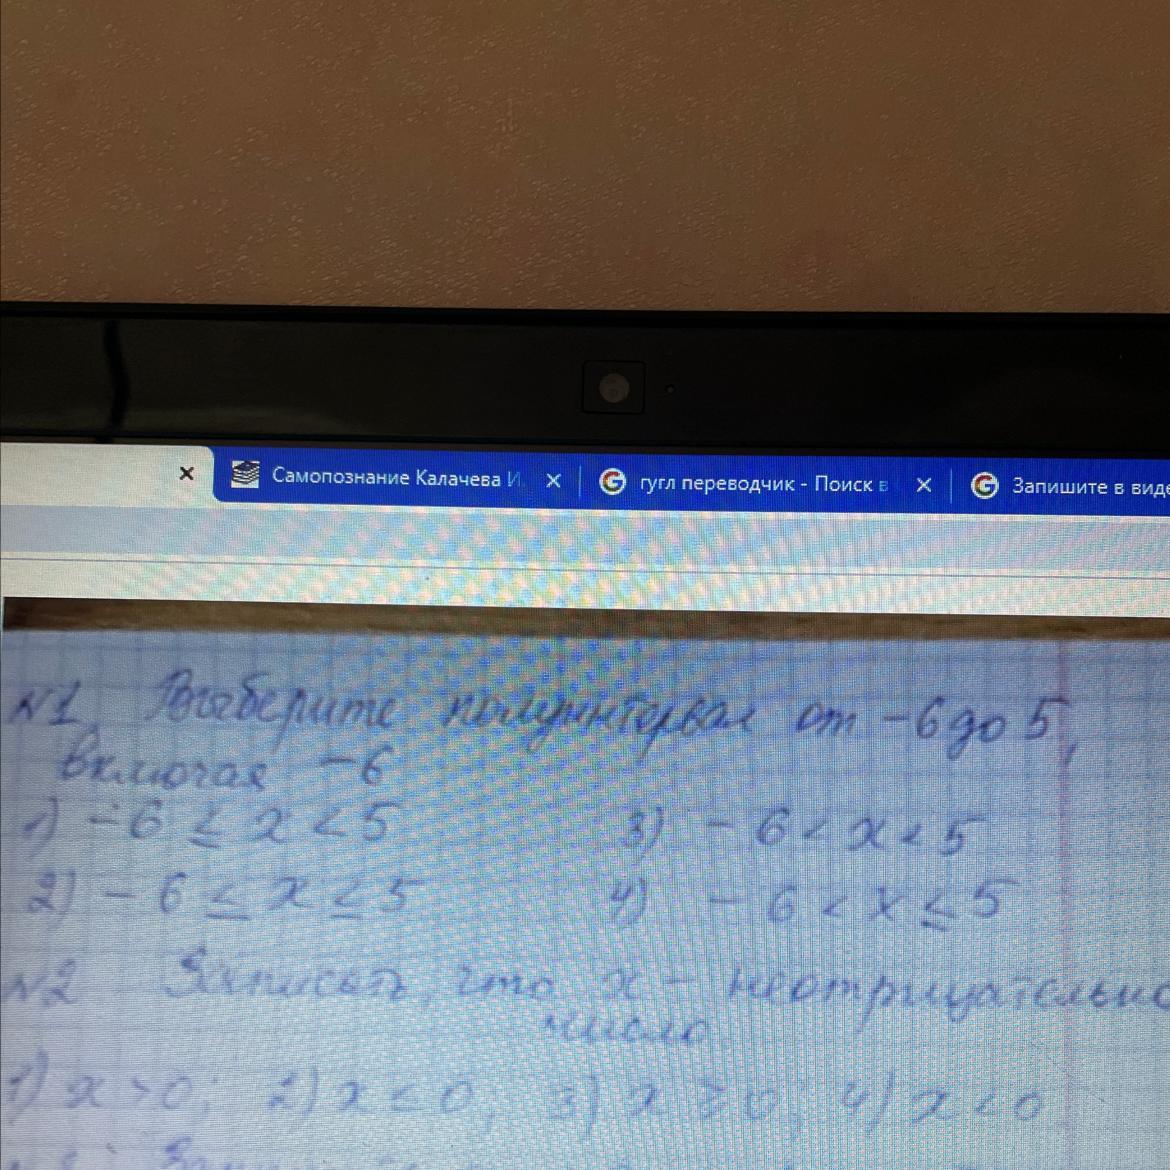 Самопознание Калачева И
гугл переводчик - Поиск в
Запишите в виде
№1 Выберите полуинтервал от -6 до 5,
включая -6
1) -6 ≤ x < 5
3) -6 < x < 5
2) -6 ≤ x ≤ 5
4) -6 < x ≤ 5
№2 Записать, что x - неотрицательно
число
1) x > 0; 2) x ≤ 0; 3) x ≥ 0; 4) x < 0